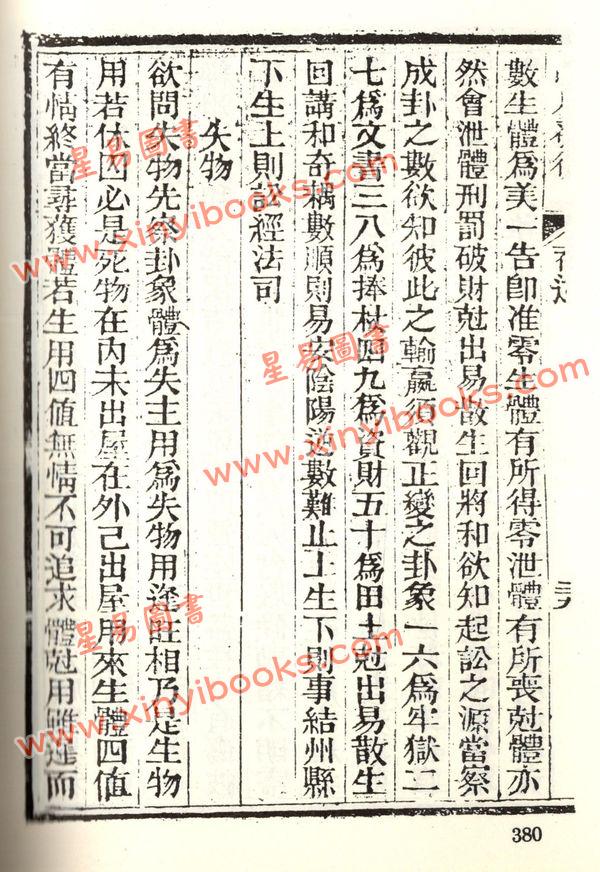 數生體爲美一告卽准零生體有所得零泄體有所喪尅體亦
然會泄體刑罰破財尅出易散生回將和欲知起訟之源當察
成卦之數欲知彼此之輸贏須觀正變之卦象一六爲牢獄二
七爲文書三八爲捧杖四九爲資財五十爲田土尅出易散生
回講和奇耦數順則易安陰陽逆數難止上生下則事結州縣
下生上則訟經法司
失物
欲問失物先察卦象體爲失主用爲失物用逢旺相乃是生物
用若休囚必是死物在內未出屋在外已出屋用來生體四值
有情終當尋獲體若生用四值無情不可追求體尅用雖遲而
380
星易圖書
www.xinyibooks.com
星易圖書
www.xinyibooks.com
星易圖書
www.xinyibooks.com